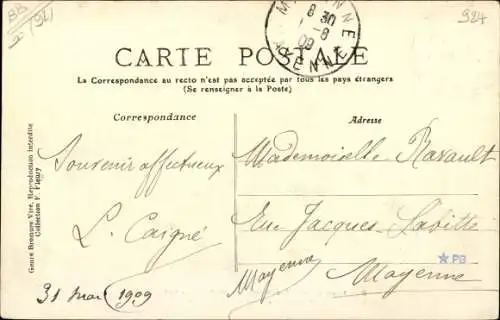 924
MAYENNE
8 30
8
09
MAYENNE
CARTE POSTALE
La Correspondance au recto n'est pas acceptée par tous les pays étrangers
(Se renseigner à la Poste)
Correspondance
Adresse
Souvenir affectueux
L. Caigné
31 mai 1909
Mademoiselle Ravault
Rue Jacques Labitte
Mayenne
Mayenne
PB
Genre Bromure Vité, Reproduction interdite
Collection F. Fleury